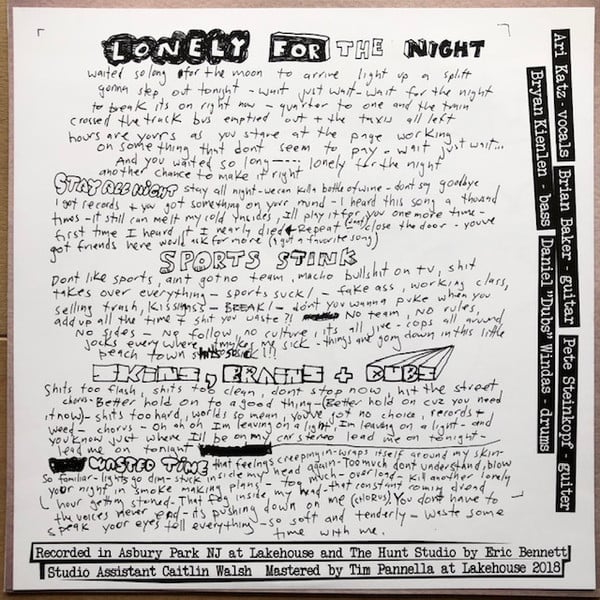 LONELY FOR THE NIGHT
waited so long for the moon to arrive light up a spliff
gonna step out tonight - wait just wait - wait for the night
to break its on right now - quarter to one and the train
crossed the track bus emptied out + the taxis all left
hours are yours as you stare at the page working
on something that dont seem to pay - wait just wait...
And you waited so long ---- lonely for the night
another chance to make it right
STAY ALL NIGHT stay all night - we can kill a bottle of wine - dont say goodbye
I got records + you got something on your mind - I heard this song a thousand
times - it still can melt my cold insides, Ill play it for you one more time -
first time I heard it I nearly died Repeat close the door - youve
got friends here would ask for more (I got a favorite song)
SPORTS STINK
Dont like sports, aint got no team, macho bullshit on tv, shit
takes over everything - sports suck! - fake ass, working class,
selling trash, kiss my ass - BREAK! - dont you wanna puke when you
add up all the time + shit you waste?! No team, No rules,
No sides - No follow, no culture, its all jive - cops all around
jocks everywhere, it makes me sick - things are going down in this little
peach town !!!
SKINS, BRAINS + DUBS
Shits too flash, shits too clean, dont stop now, hit the street
chorus - Better hold on to a good thing - (Better hold on cuz you need
it now) - shits too hard, worlds so mean, you've got no choice, records +
weed - chorus - Oh ah oh Im leaving on a light, Im leaving on a light - and
you know just where Ill be on my car stereo lead me on tonight -
lead me on tonight
WASTED TIME that feelings creeping in - wraps itself around my skin -
So familiar - lights go dim - stuck inside my head again - Too much dont understand, blow
your night in smoke making plans - too much - overload - kill another lonely
hour getting stoned - That fog inside my head - that constant coming dread
the voices never end - its pushing down on me (CHORUS) You dont have to
speak your eyes tell everything - so soft and tenderly - waste some
time with me.
Recorded in Asbury Park NJ at Lakehouse and The Hunt Studio by Eric Bennett
Studio Assistant Caitlin Walsh Mastered by Tim Pannella at Lakehouse 2018
Ari Katz - vocals Brian Baker - guitar Pete Steinkopf - guitar
Bryan Kienlen - bass Daniel "Dubs" Windas - drums